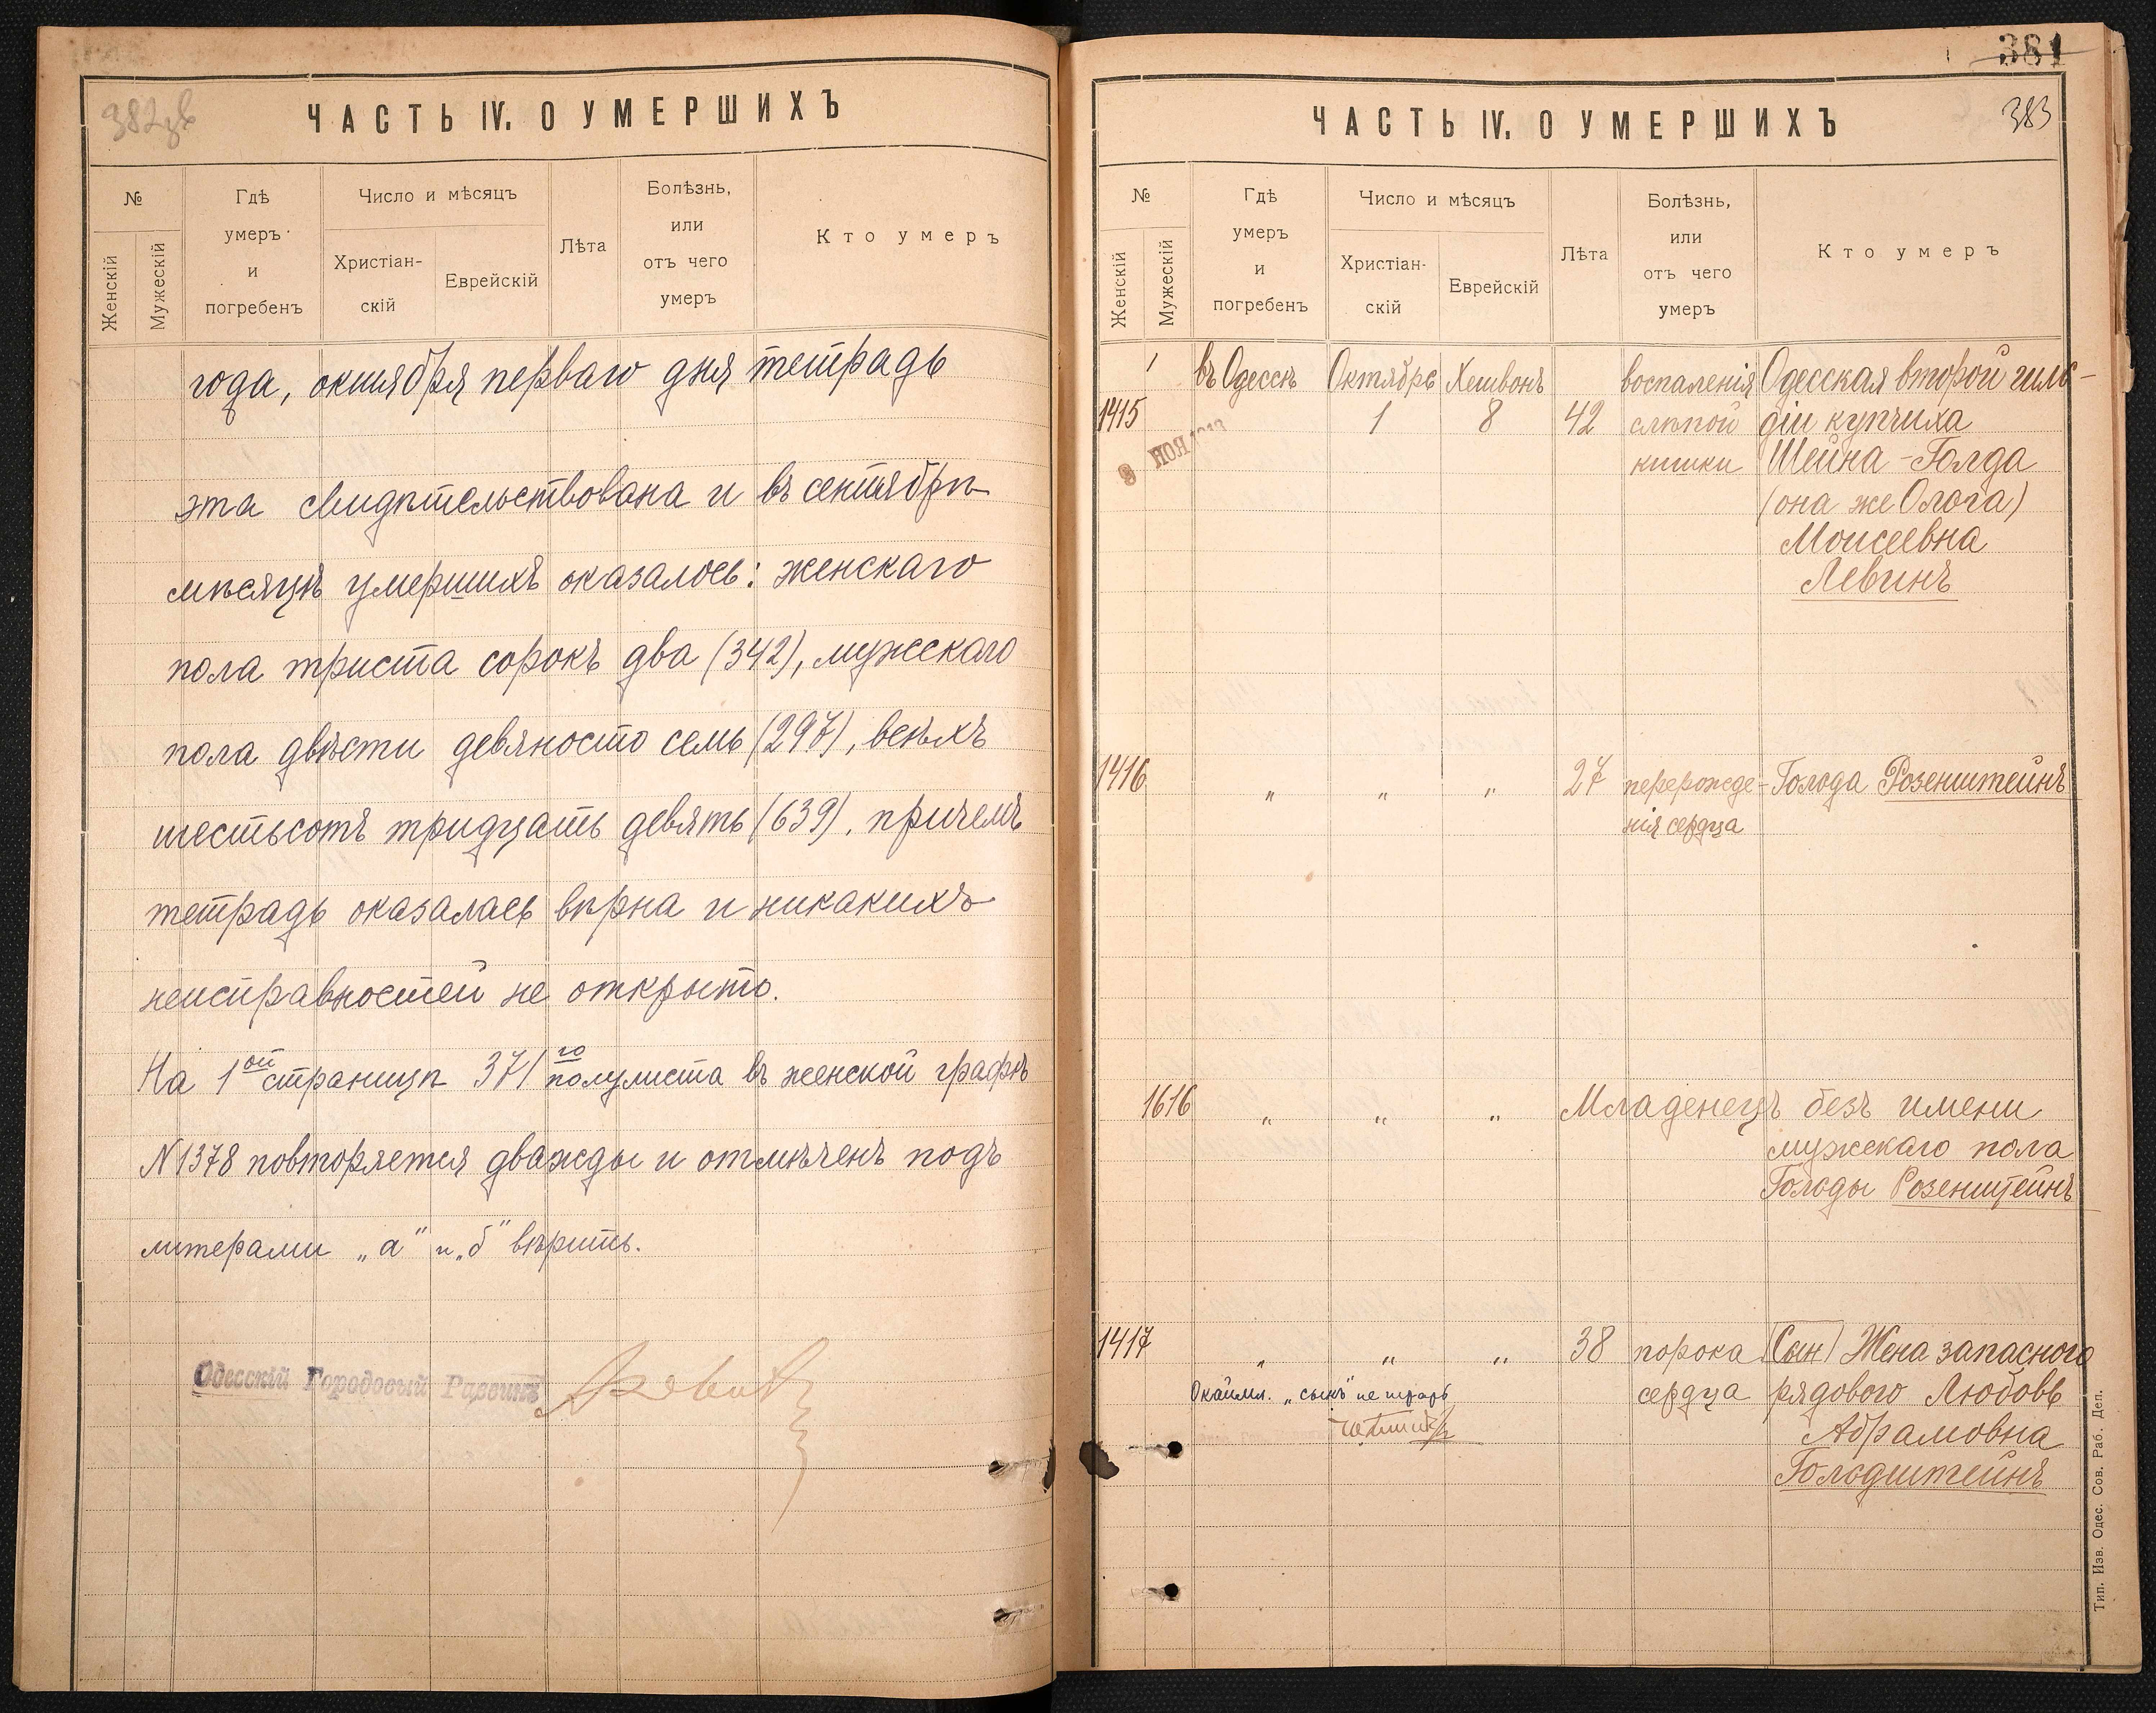 382 об
ЧАСТЬ IV. О УМЕРШИХЪ
№
Женскій
Мужескій
Гдѣ
умеръ
и
погребенъ
Число и мѣсяцъ
Христіан-
скій
Еврейскій
Лѣта
Болѣзнь,
или
отъ чего
умеръ
Кто умеръ
года, октября перваго дня тетрадь
эта свидѣтельствована и въ сентябрѣ
мѣсяцѣ умершихъ оказалось: женскаго
пола триста сорокъ два (342), мужескаго
пола двѣсти девяносто семь (297), всѣхъ
шестьсотъ тридцать девять (639), причемъ
тетрадь оказалась вѣрна и никакихъ
неисправностей не открыто.
На 1ой страницѣ 371го полулиста въ женской графѣ
N1378 повторяется дважды и отмѣченъ подъ
литерами „а“ и „б“ вѣрить.
Одесскій Городовый Раввинъ
381
383
ЧАСТЬ IV. О УМЕРШИХЪ
№
Женскій
Мужескій
Гдѣ
умеръ
и
погребенъ
Число и мѣсяцъ
Христіан-
скій
Еврейскій
Лѣта
Болѣзнь,
или
отъ чего
умеръ
Кто умеръ
въ Одессѣ Октябрь Хешвонъ воспаленія Одесская второй гиль-
1415 1 8 42 слѣпой діи купчиха
кишки Шейна-Голда
(она же Ольга)
Моисеевна
Левинъ
1416 „ „ „ 27 перерожде- Гольда Розенштейнъ
нія сердца
1616 „ „ „ Младенецъ безъ имени
мужескаго пола
Гольды Розенштейнъ
1417 „ „ „ 38 порока (Сын) Жена запасного
сердца рядового Любовь
Абрамовна
Гольдштейнъ
Окаймл. „сынъ“ не
Тип. Изв. Одес. Сов. Раб. Деп.